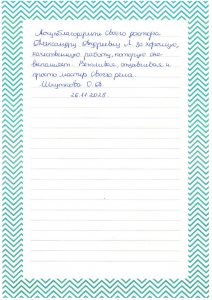 Хочу благодарить своего доктора
Александру Андреевну А. за хорошую,
качественную работу, которую она
выполняет. Вежливая, отзывчивая и
просто мастер своего дела.
О. В.
26.11.2023